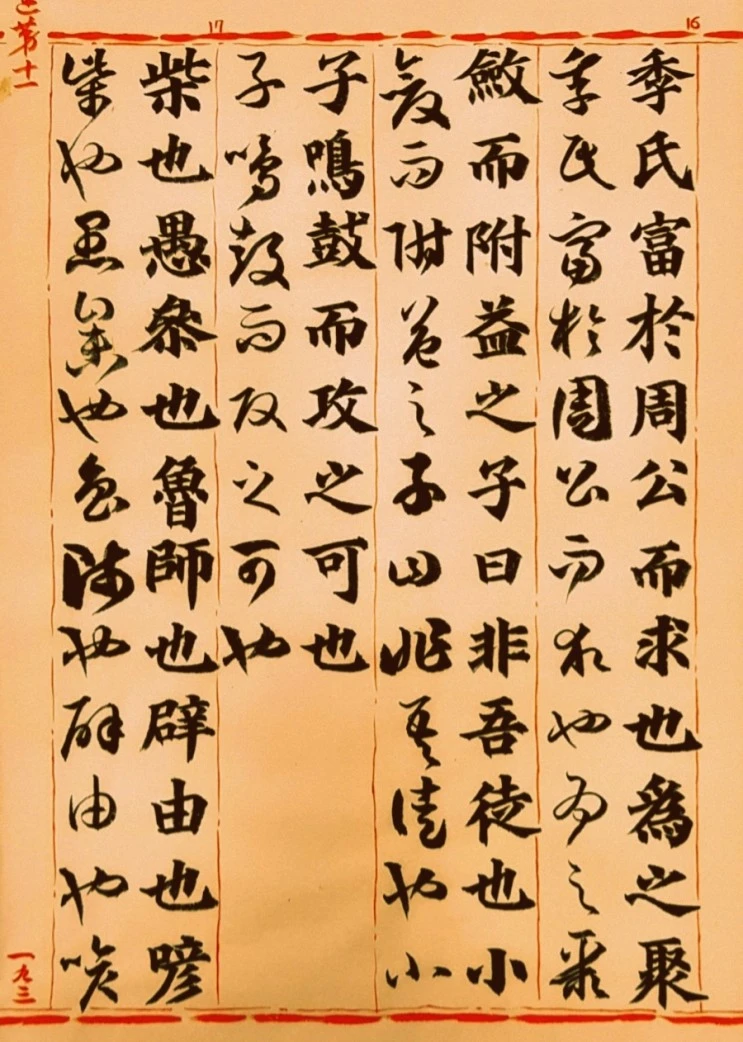 16
季氏富於周公而求也為之聚
季氏富於周公而求也為之聚
斂而附益之子曰非吾徒也小
斂而附益之子曰非吾徒也小
17
子鳴鼓而攻之可也
子鳴鼓而攻之可也
柴也愚參也魯師也辟由也喭
柴也愚參也魯師也辟由也喭
第十一
一九三